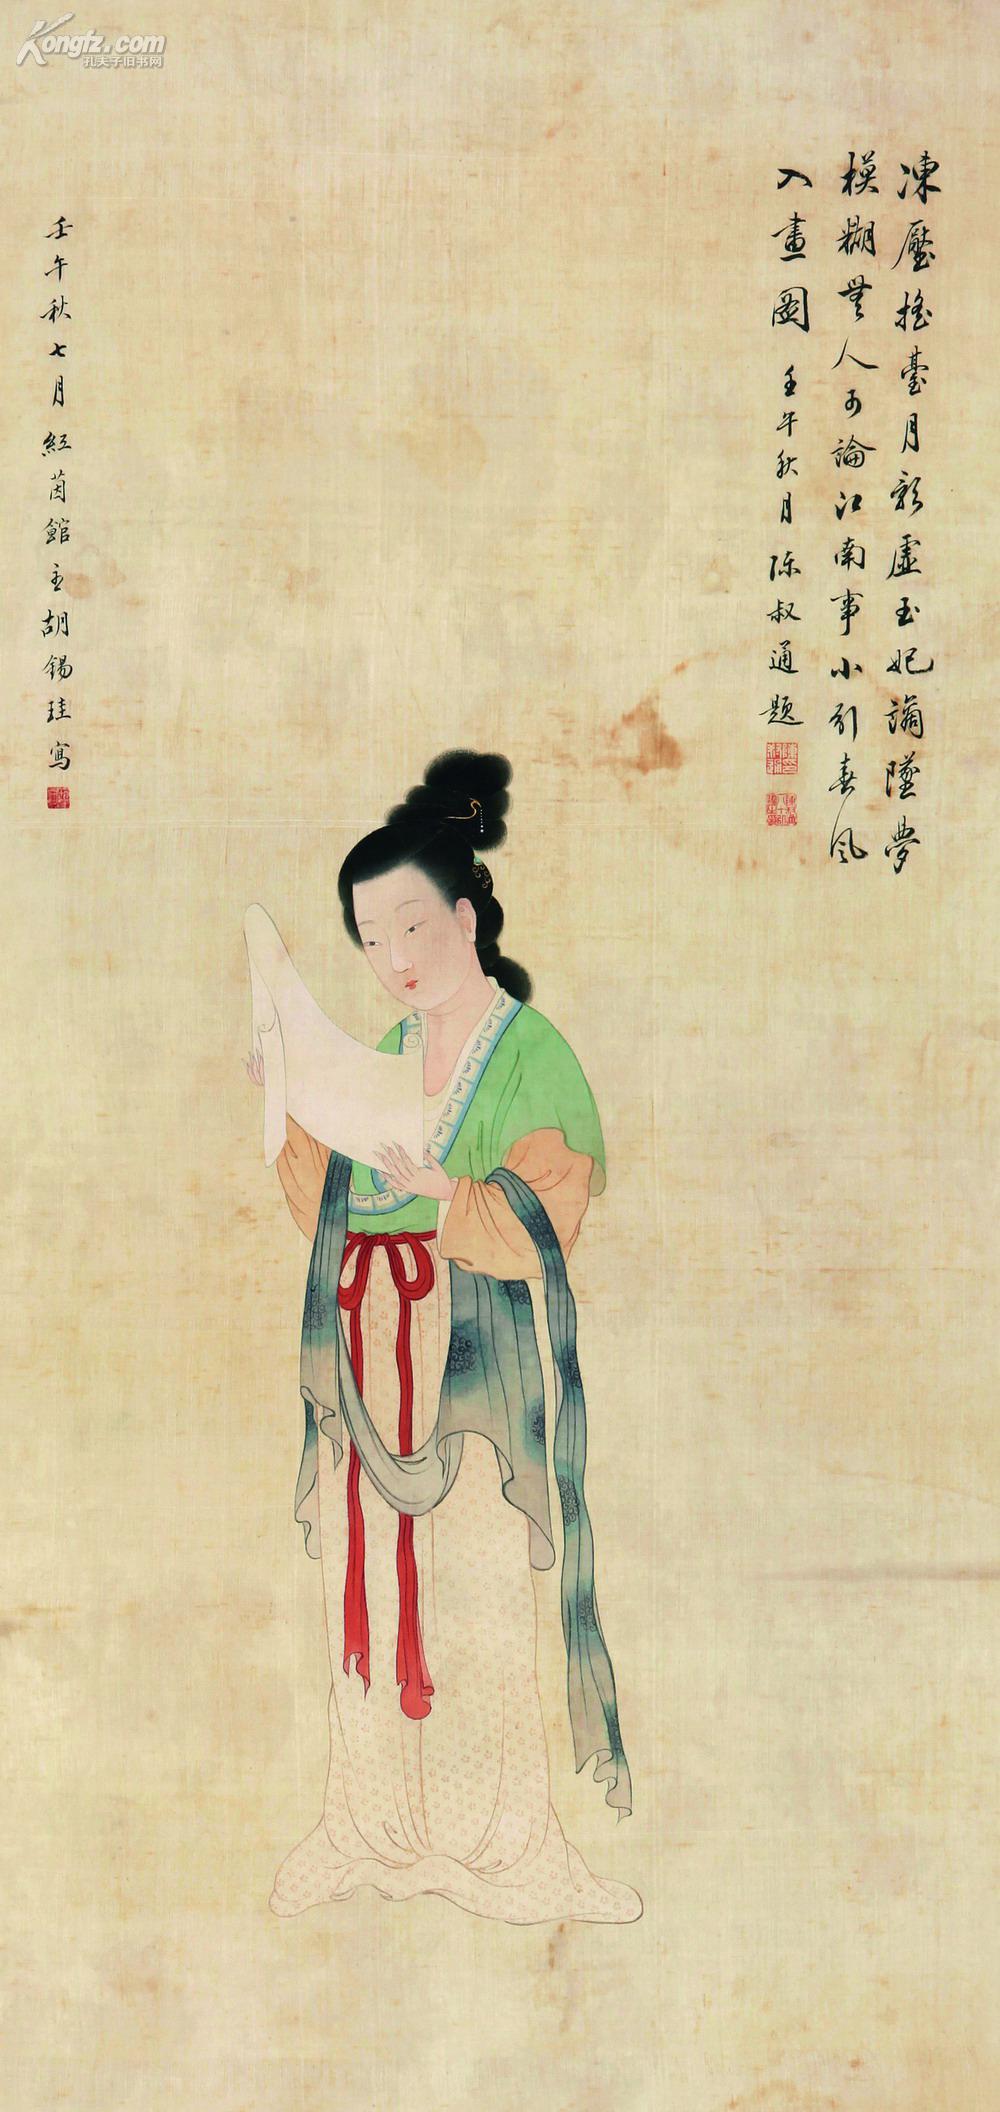 Kongfz.com
孔夫子旧书网
凍壓搖臺月影虛玉妃謫墜夢
模糊無人可論江南事小引春風
入畫圖
壬午秋月陈叔通題
壬午秋七月紅茵館主胡錫珪寫